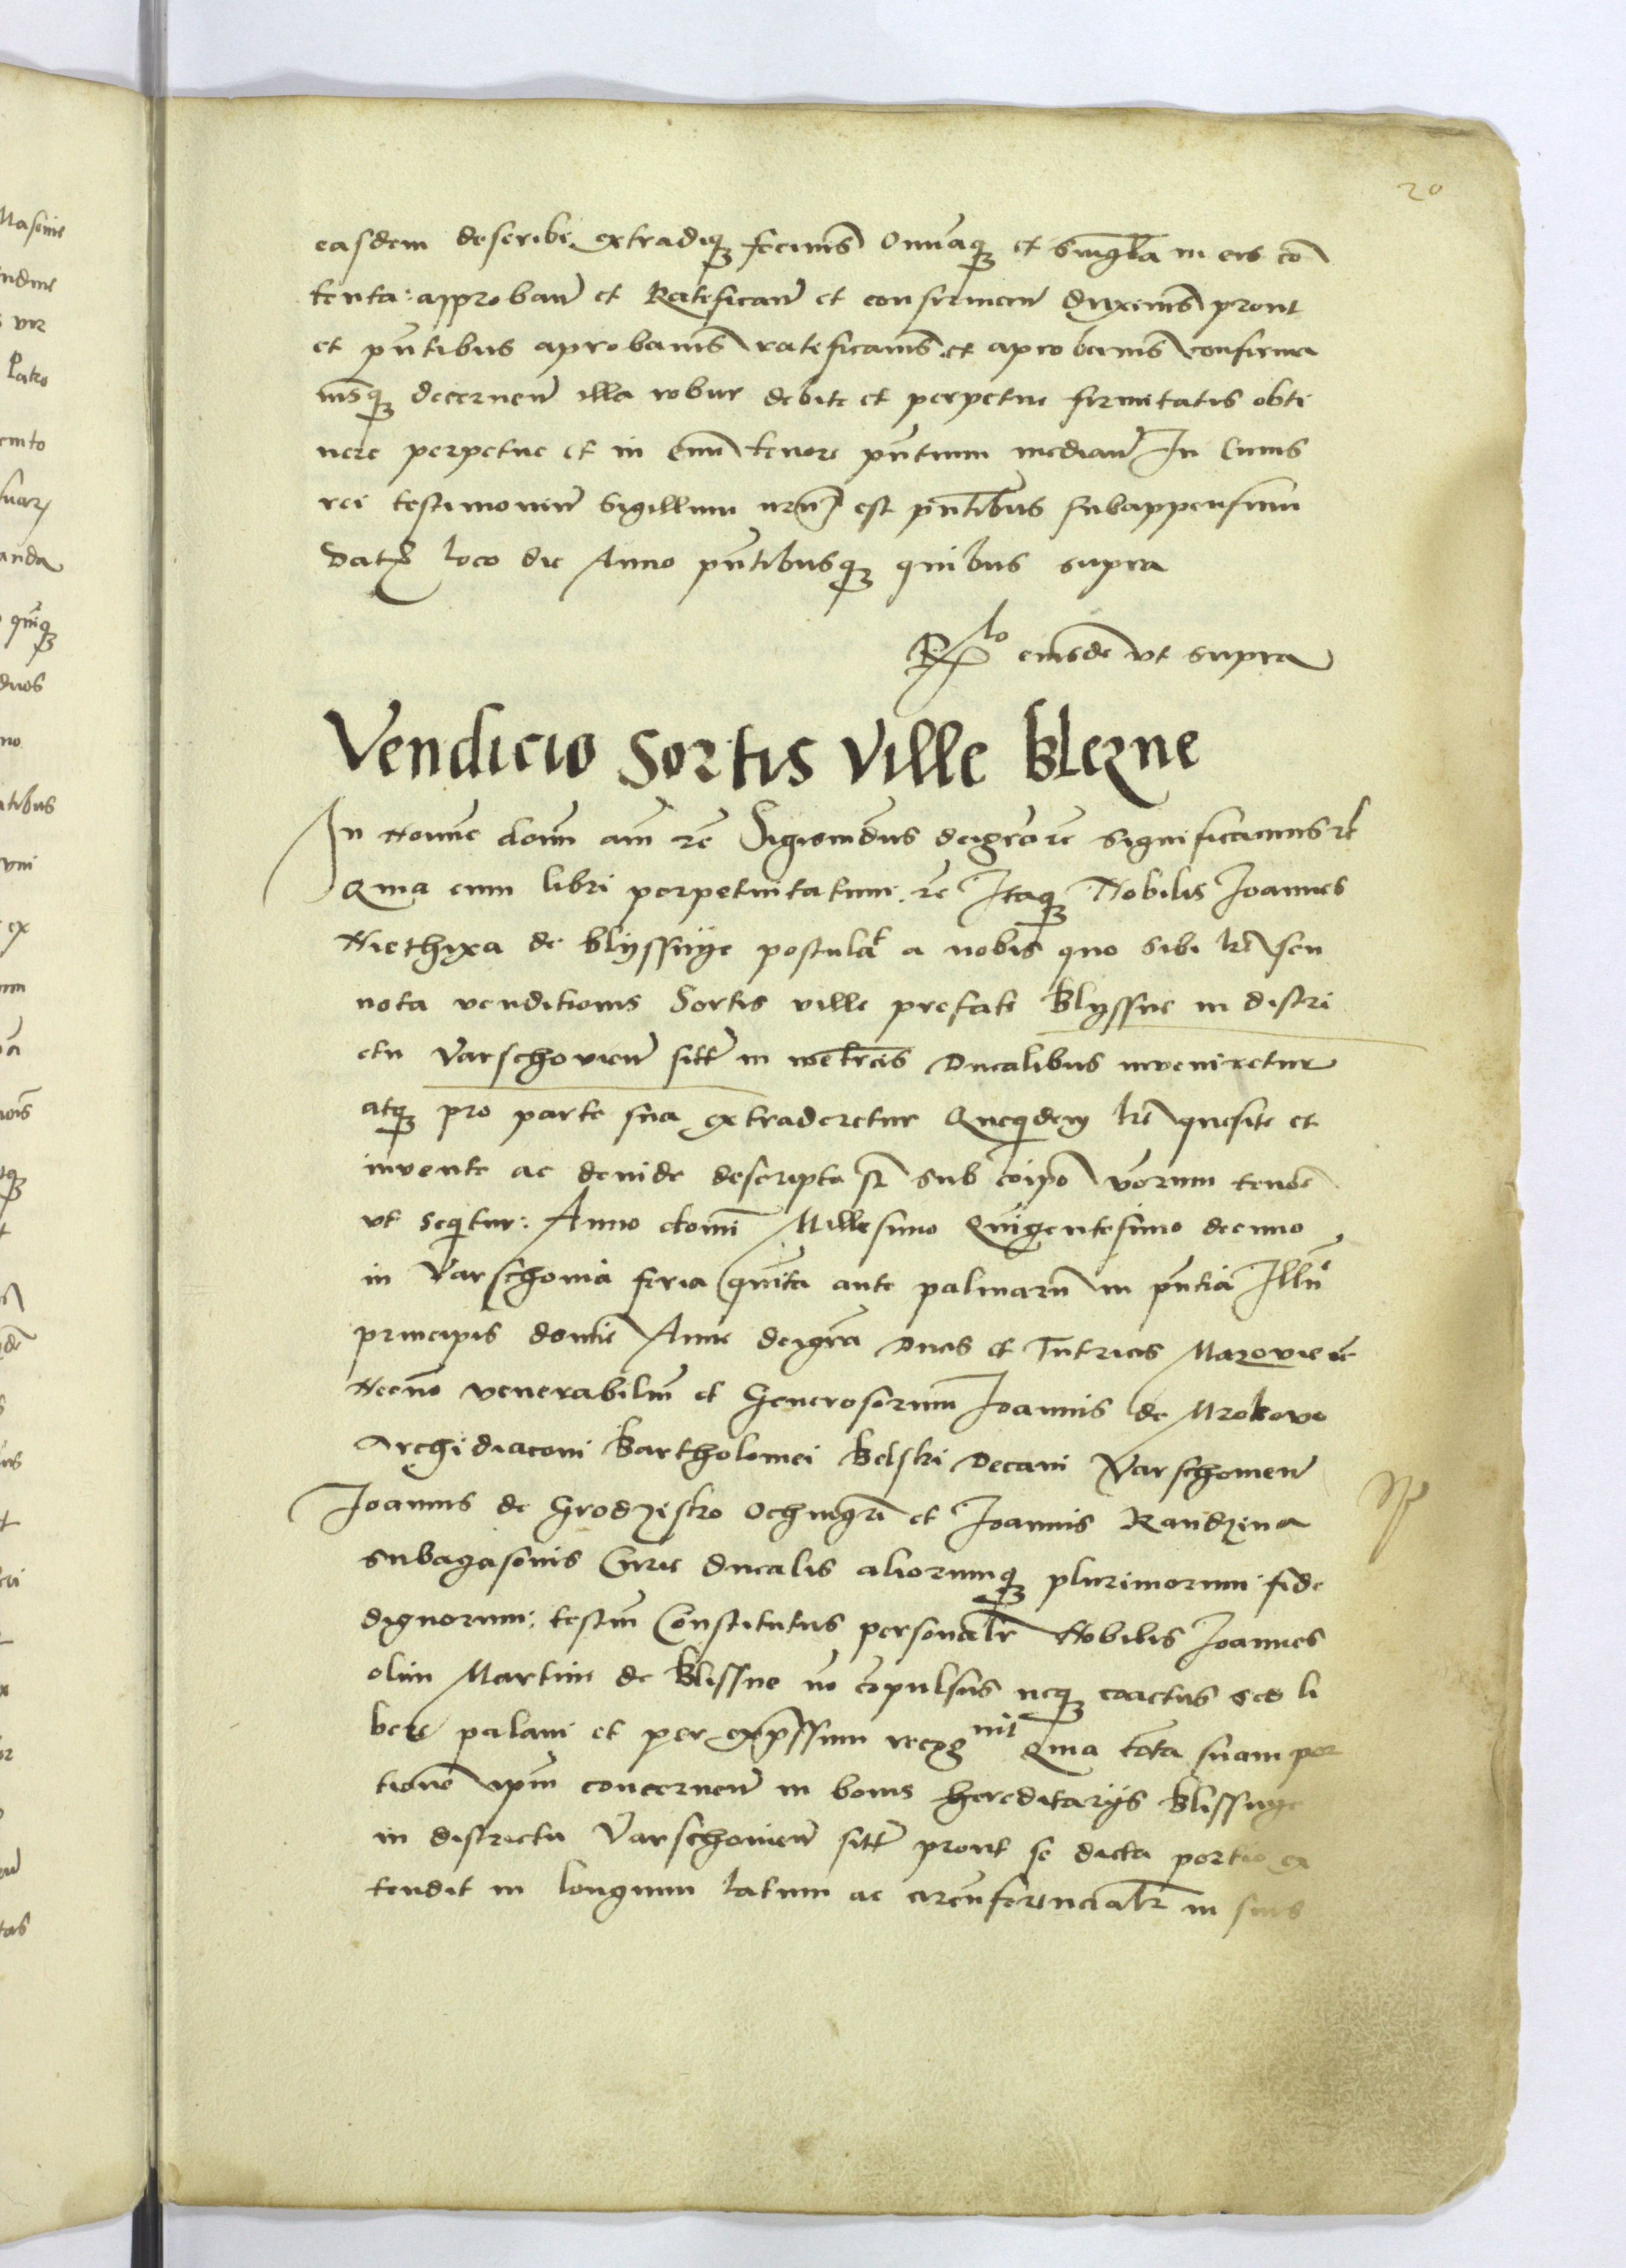 20
easdem describi extradiq3 fecims Omniaq3 et singla in eis co
tenta: approban et Ratefican et confirman duximus prout
et pntibus aprobamus rateficams et aprobamus confirma
musq3 decernen illa robur debite et perpetue firmitatis obti
nere perpetue et in evm tenore pntium median In Cuius
rei testimonium Sigillum nrm est pntibus subappensum
Dat loco die Anno pntibusq3 quibus supra
Rlo eiusde vt supra
Vendicio Sortis Ville Blezne
In Nomine domi am rc Sigismdus dei gra rc significamus rc
Quia cum libri perpetuitatum rc Itaq3 Nobilis Joannes
Niethyxa de Blyssnye postulat a nobis quo sibi lre seu
nota venditionis Sortis ville prefate Blyssne in distri
ctu Varschovien sitt in metrcis Ducalibus inveniretur
atq3 pro parte sua extraderetur Quequidem lre quesite et
invente ac deinde descripte st sub verorum tenore
vt sequitur: Anno domi Millesimo Quigentesimo decimo
in Varschovia feria quita ante palmarum in pntia Illu
principis domie Anne dei gra Ducis et Tutricis Mazovie rc
Necno venerabilim et Generosorum Joannis de Mrokovo
Archidiaconi Bartholomei Belski Decani Varschovien
Joannis de Grodzisko Ochmgri et Joannis Randzina
subagasonis Curie ducalis aliorumq3 plurimorum fide
dignorum: testim Constitutus personalr Nobilis Joannes
olim Martini de Blissne no copulsus neq3 coactus sed li
bere palam et per expssum recognit Quia tota suam por
tione ipm concernen in bonis hereditarijs Blissnye
in districtu Varschovien sitt prout se dicta portio ex
tendit in longum latum ac circuferencialr in suis